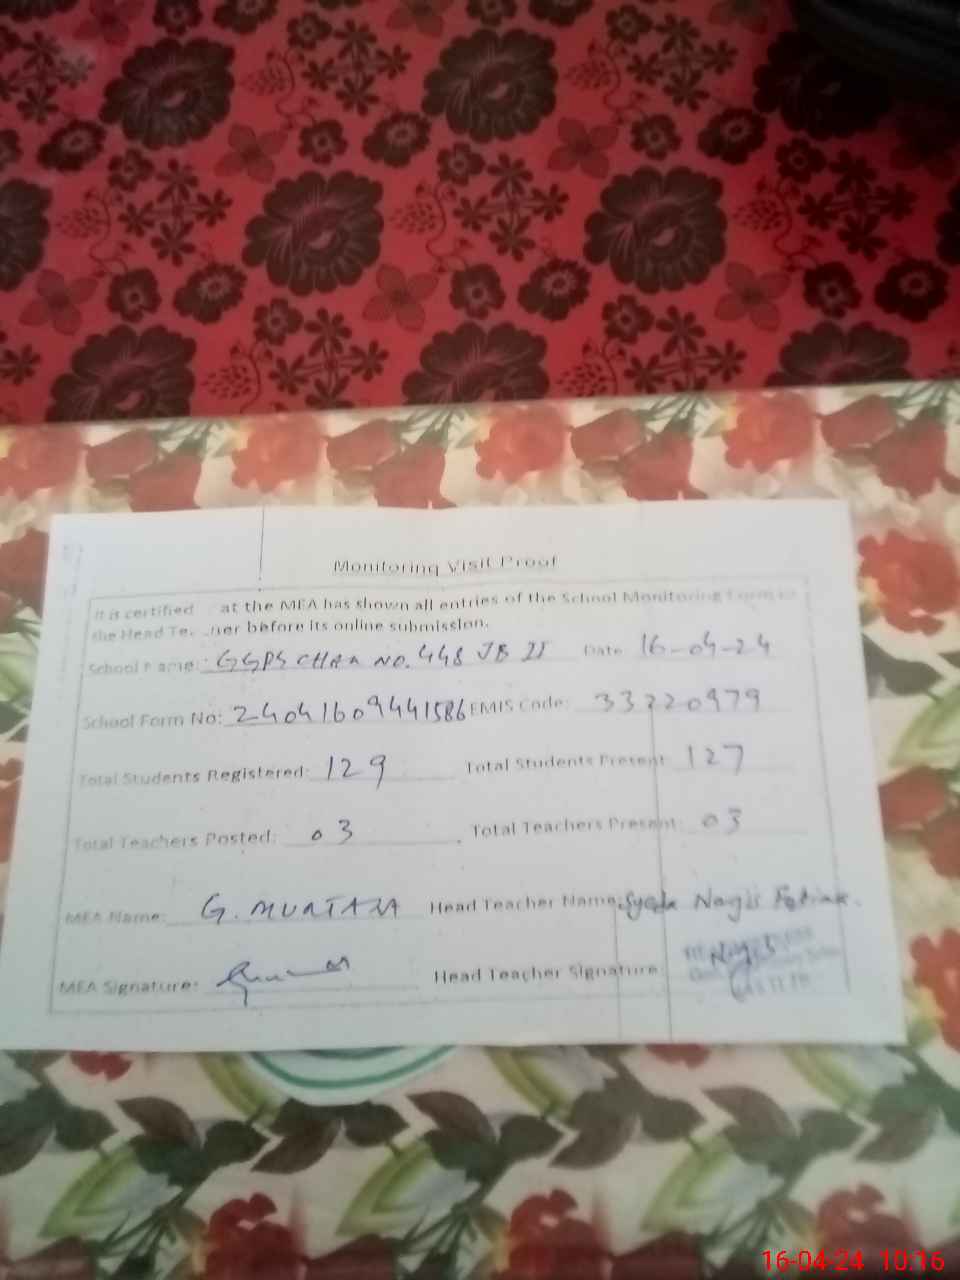 Monitoring Visit Proof
It is certified at the MEA has shown all entries of the School Monitoring Form to
the Head Te ner before its online submission.
School Name: GGPS CHAK NO. 448 JB II Date 16-04-24
School Form No: 24041609441586 EMIS Code: 33220979
Total Students Registered: 129 Total Students Present: 127
Total Teachers Posted: 03 Total Teachers Present: 03
MEA Name: G. MURTAZA Head Teacher Name: Syeda Nargis Fatima.
MEA Signature: Head Teacher Signature: Nargis
16-04-24 10:16